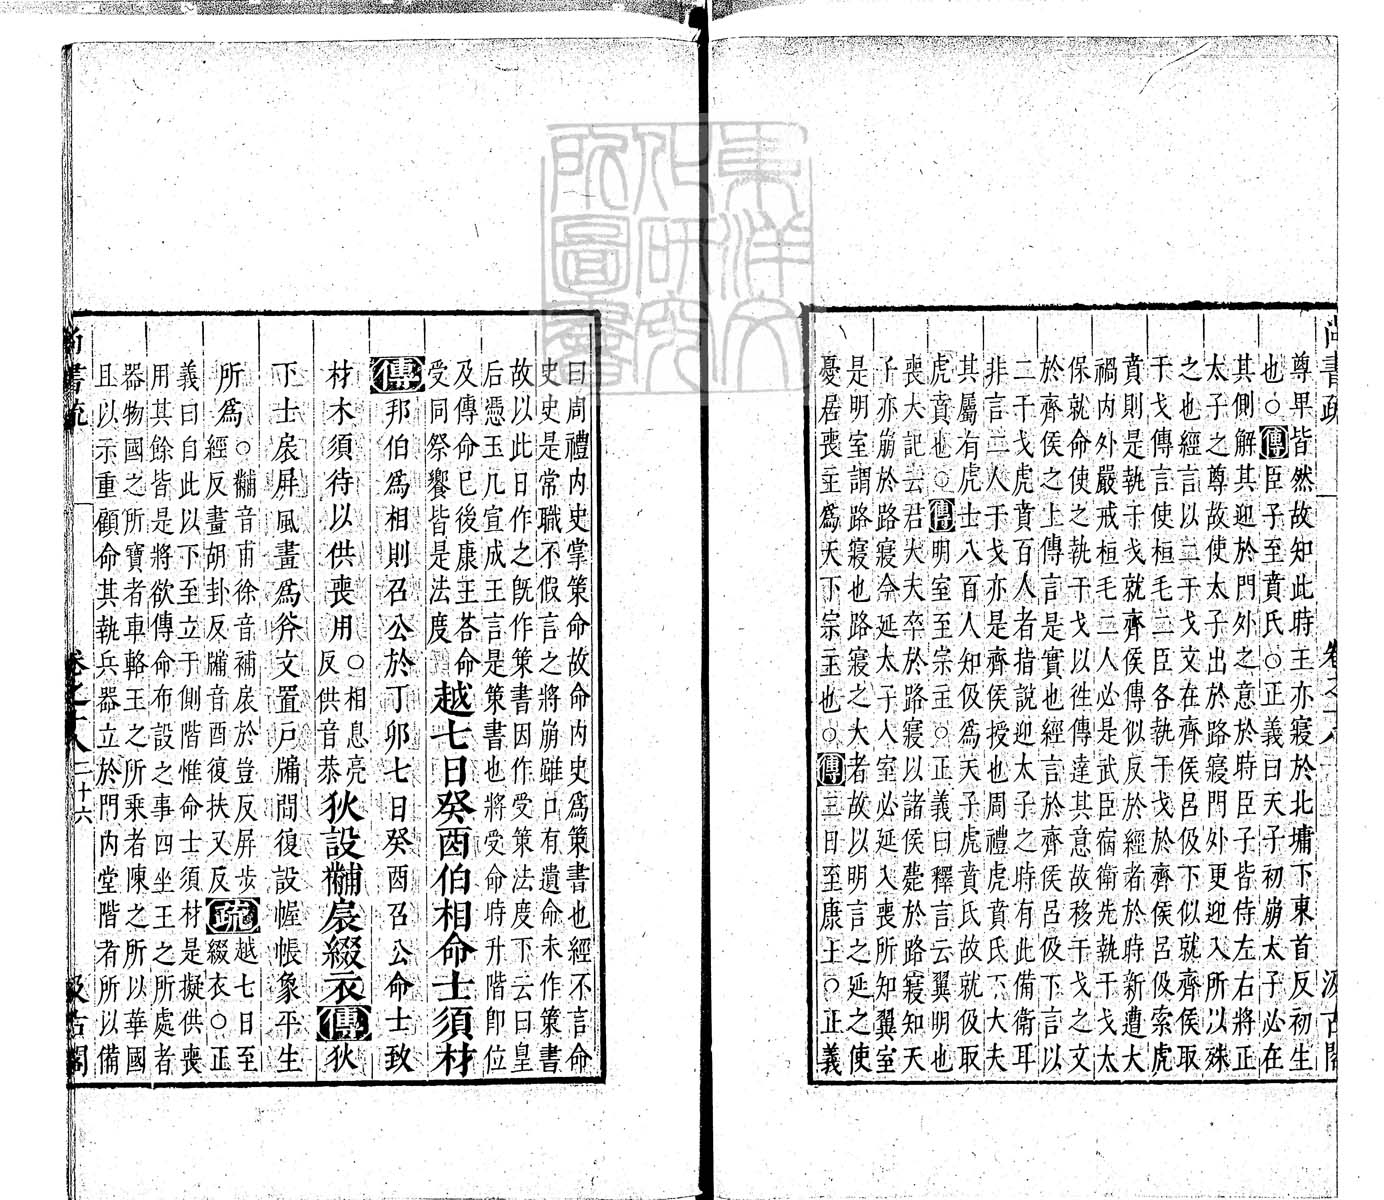 尚書疏 卷之十八 汲古閣
尊卑皆然故知此時王亦寢於北墉下東首反初生
也○傳臣子至賁氏○正義曰天子初崩太子必在
其側解其迎於門外之意於時臣子皆侍左右將正
太子之尊故使太子出於路寢門外更迎入所以殊
之也經言以二干戈文在齊侯呂伋下似就齊侯取
干戈傳言使桓毛二臣各執干戈於齊侯呂伋索虎
賁則是執干戈就齊侯傳似反於經者於時新遭大
禍內外嚴戒桓毛二人必是武臣宿衛先執干戈太
保就命使之執干戈以往傳達其意故移干戈之文
於齊侯之上傳言是實也經言於齊侯呂伋下言以
二干戈虎賁百人者指說迎太子之時有此備衛耳
非言二人干戈亦是齊侯授也周禮虎賁氏下大夫
其屬有虎士八百人知伋爲天子虎賁氏故就伋取
虎賁也○傳明室至宗主○正義曰釋言云翼明也
喪大記云君大夫卒於路寢以諸侯薨於路寢知天
子亦崩於路寢今延太子入室必延入喪所知翼室
是明室謂路寢也路寢之大者故以明言之延之使
憂居喪主爲天下宗主也○傳三日至康王○正義
曰周禮內史掌策命故命內史爲策書也經不言命
史史是常職不假言之將崩雖口有遺命未作策書
故以此日作之旣作策書因作受策法度下云曰皇
后憑玉几宣成王言是策書也將受命時升階即位
及傳命已後康王荅命
受同祭饗皆是法度
越七日癸酉伯相命士須材
傳邦伯爲相則召公於丁卯七日癸酉召公命士致
材木須待以供喪用
○相息亮
反供音恭
狄設黼扆綴衣傳狄
下士扆屏風畫爲斧文置戶牖間復設幄帳象平生
所爲
○黼音甫徐音補扆於豈反屏步
經反畫胡卦反牖音酉復扶又反
疏
越七日至
綴衣○正
義曰自此以下至立于側階惟命士須材是擬供喪
用其餘皆是將欲傳命布設之事四坐王之所處者
器物國之所寶者車輅王之所乘者陳之所以華國
且以示重顧命其執兵器立於門內堂階者所以備
尚書疏 卷之十八 二十六 汲古閣
東洋文
化研究
所圖書